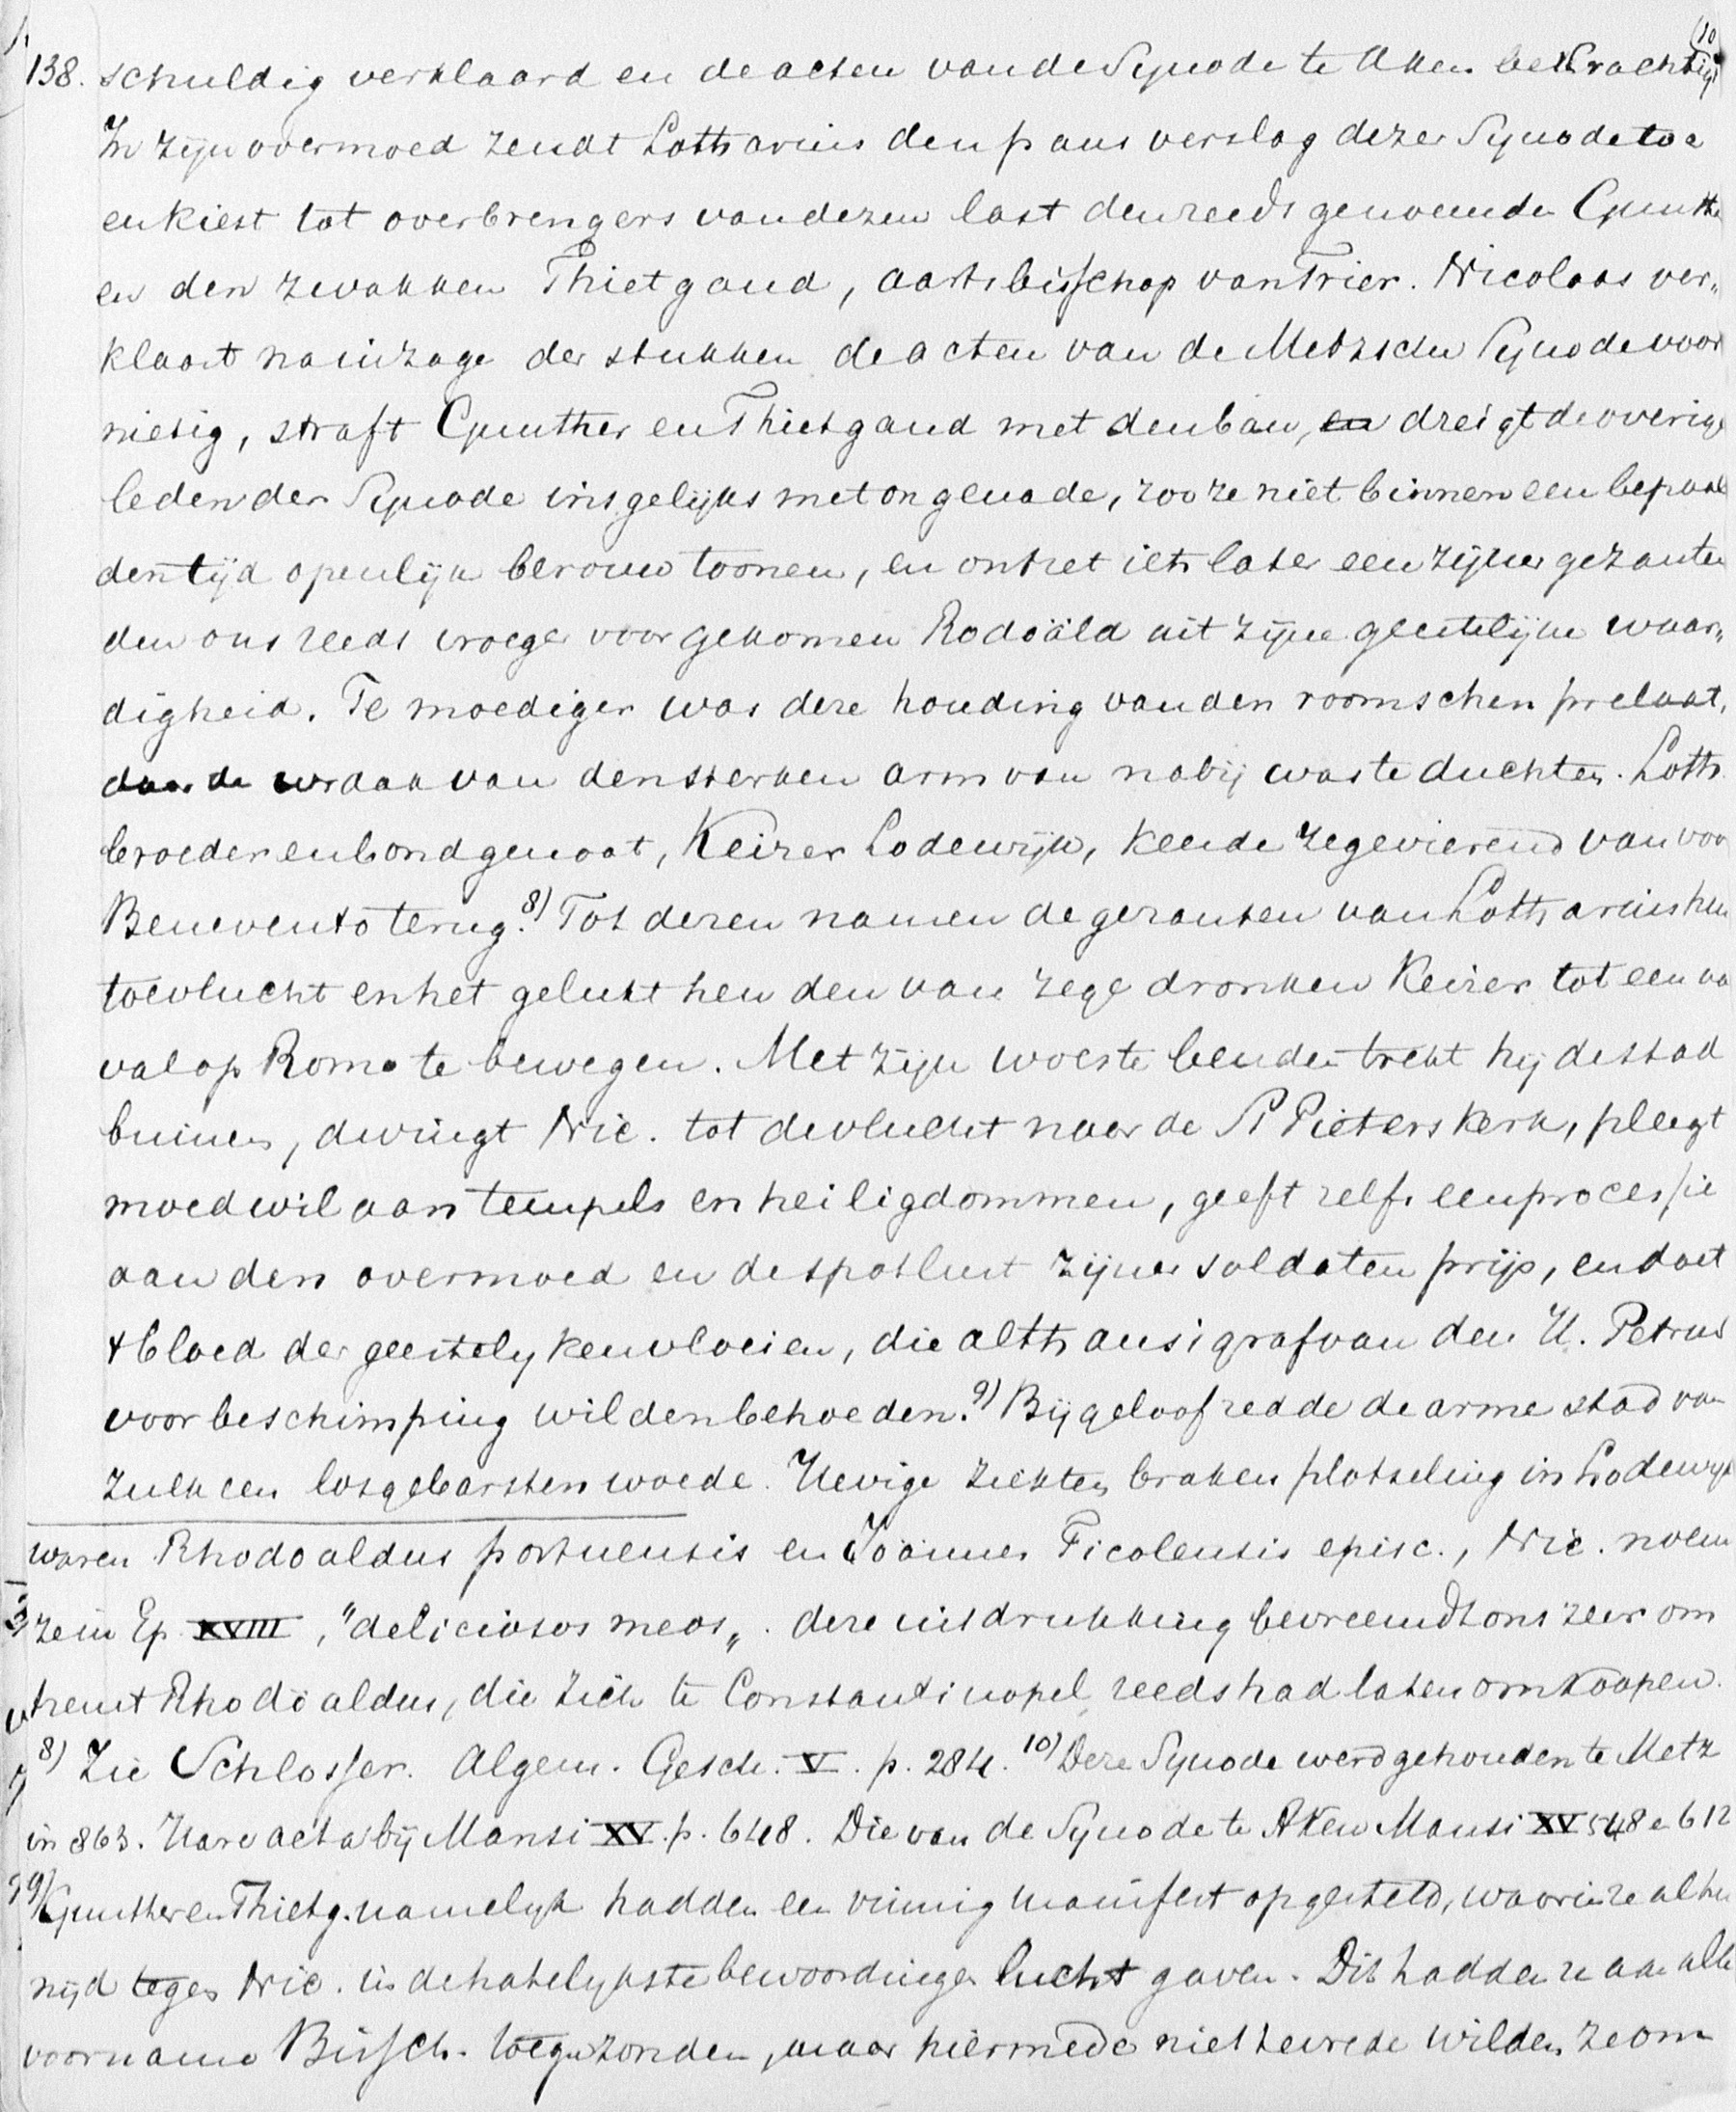 138. schuldig verklaard en de acten van de Synode te Aken bekrachtigt 10)
In zijn overmoed zendt Lotharius den paus verslag dezer Synode toe
en kiest tot overbrengers van dezen last den reeds genoemden Gunther
en den zwakken Thietgaud, aartsbisschop van Trier. Nicolaas ver„
klaart na inzage der stukken de acten van de Metzschen Synode voor
nietig, straft Gunther en Thietgaud met den ban, en dreigt de overige
leden der Synode insgelijks met ongenade, zoo ze niet binnen een bepaal
den tijd openlijk berouw toonen, en ontzet iets later een zijner gezanten
den ons reeds vroeger voorgekomen Rodoäld uit zijne geestelijke waar„
digheid. Te moediger was deze houding van den roomschen prelaat,
daar de wraak van den sterken arm van nabij was te duchten. Loth.
broeder en bondgenoot, Keizer Lodewijk, keerde zegevierend van voor
Benevento terug. 8) Tot dezen namen de gezanten van Lotharius hun
toevlucht en het gelukt hen den van zege dronken Keizer tot een aan
val op Rome te bewegen. Met zijn woeste benden trekt hij de stad
binnen, dwingt Nic. tot de vlucht naar de St Pieterskerk, pleegt
moedwil aan tempels en heiligdommen, geeft zelfs een processie
aan den overmoed en de spotlust zijner soldaten prijs, en doet
't bloed der geestelyken vloeien, die althans 't graf van den H. Petrus
voor beschimping wilden behoeden. 9) Bijgeloof redde de arme stad van
zulk een losgebarsten woede. Hevige ziekten braken plotseling in Lodewijks
waren Rhodoaldus portuensis en Joännes Ficolensis episc., Nic. noemt
ze in Ep. XVIII, "deliciosos meos„. deze uitdrukking bevreemdt ons zeer om
trent Rhodoaldus, die zich te Constantinopel reeds had laten omkoopen.
8) Zie Schlosser. Algem. Gesch. V. p. 284. 10) Deze Synode werd gehouden te Metz
in 863. Hare acta bij Mansi XV. p. 648. Die van de Synode te Aken Mansi XV 548 e 612
9) Gunther en Thietg. namelyk hadden een vinnig manifest opgesteld, waarin ze al hun
nijd tegen Nic. in de hatelykste bewoordingen lucht gaven. Dit hadden ze aan alle
voorname Bissch. toegezonden, maar hiermede niet tevrede wilden ze om